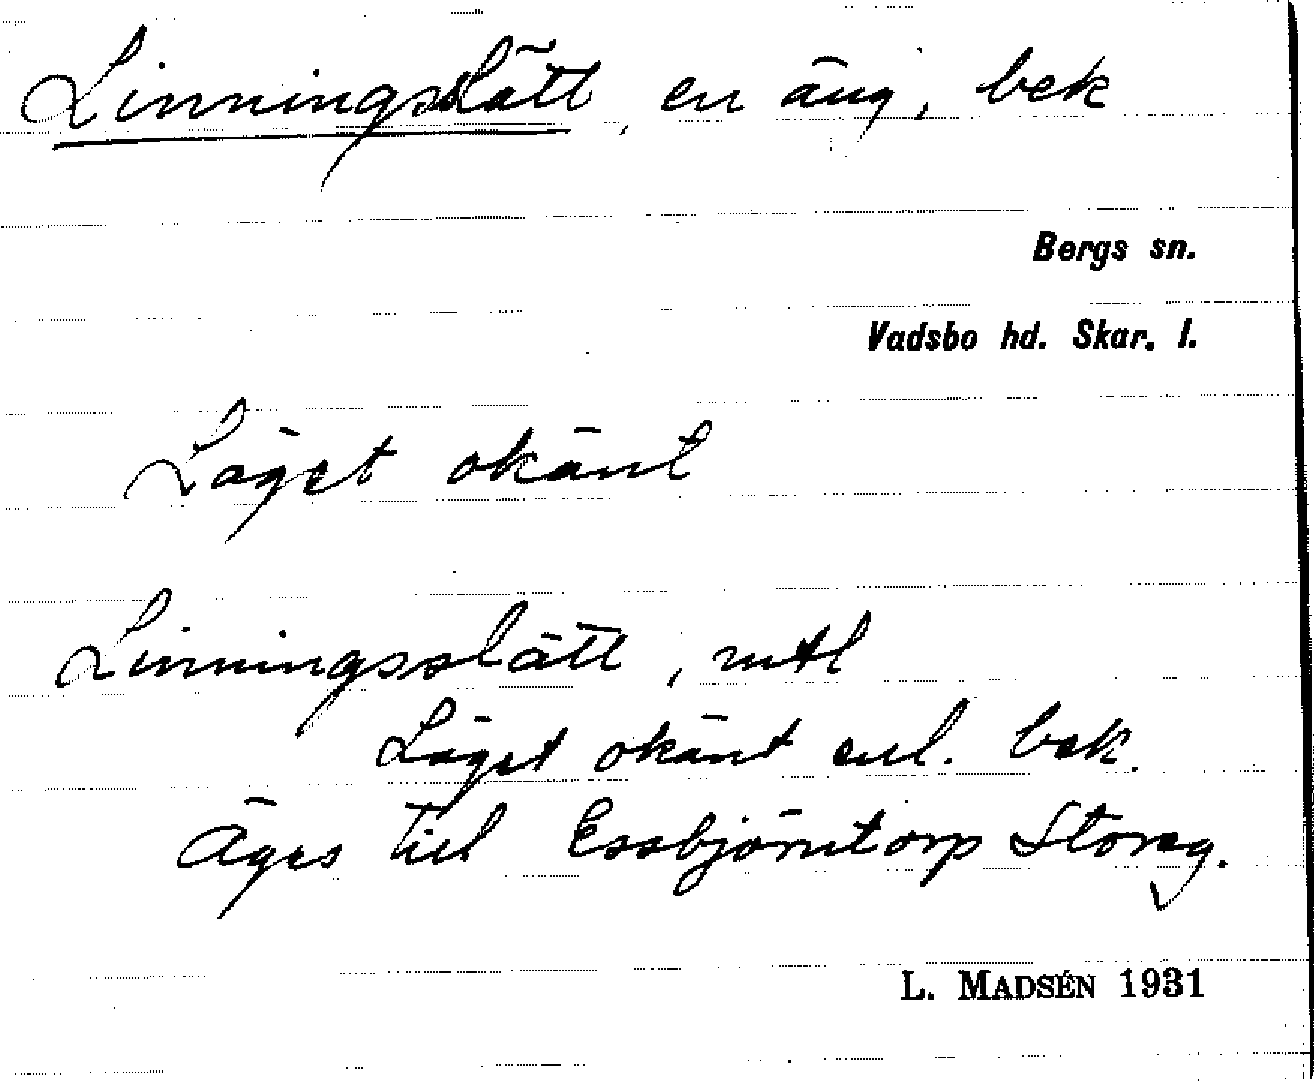 Linningsslätt, en äng, bek
Bergs sn.
Vadsbo hd. Skar. l.
Läget okänt
Linningsslätt, mtl
Läget okänt enl. bek.
Äges till Essbjörntorp Storeg.
L. MADSÉN 1931